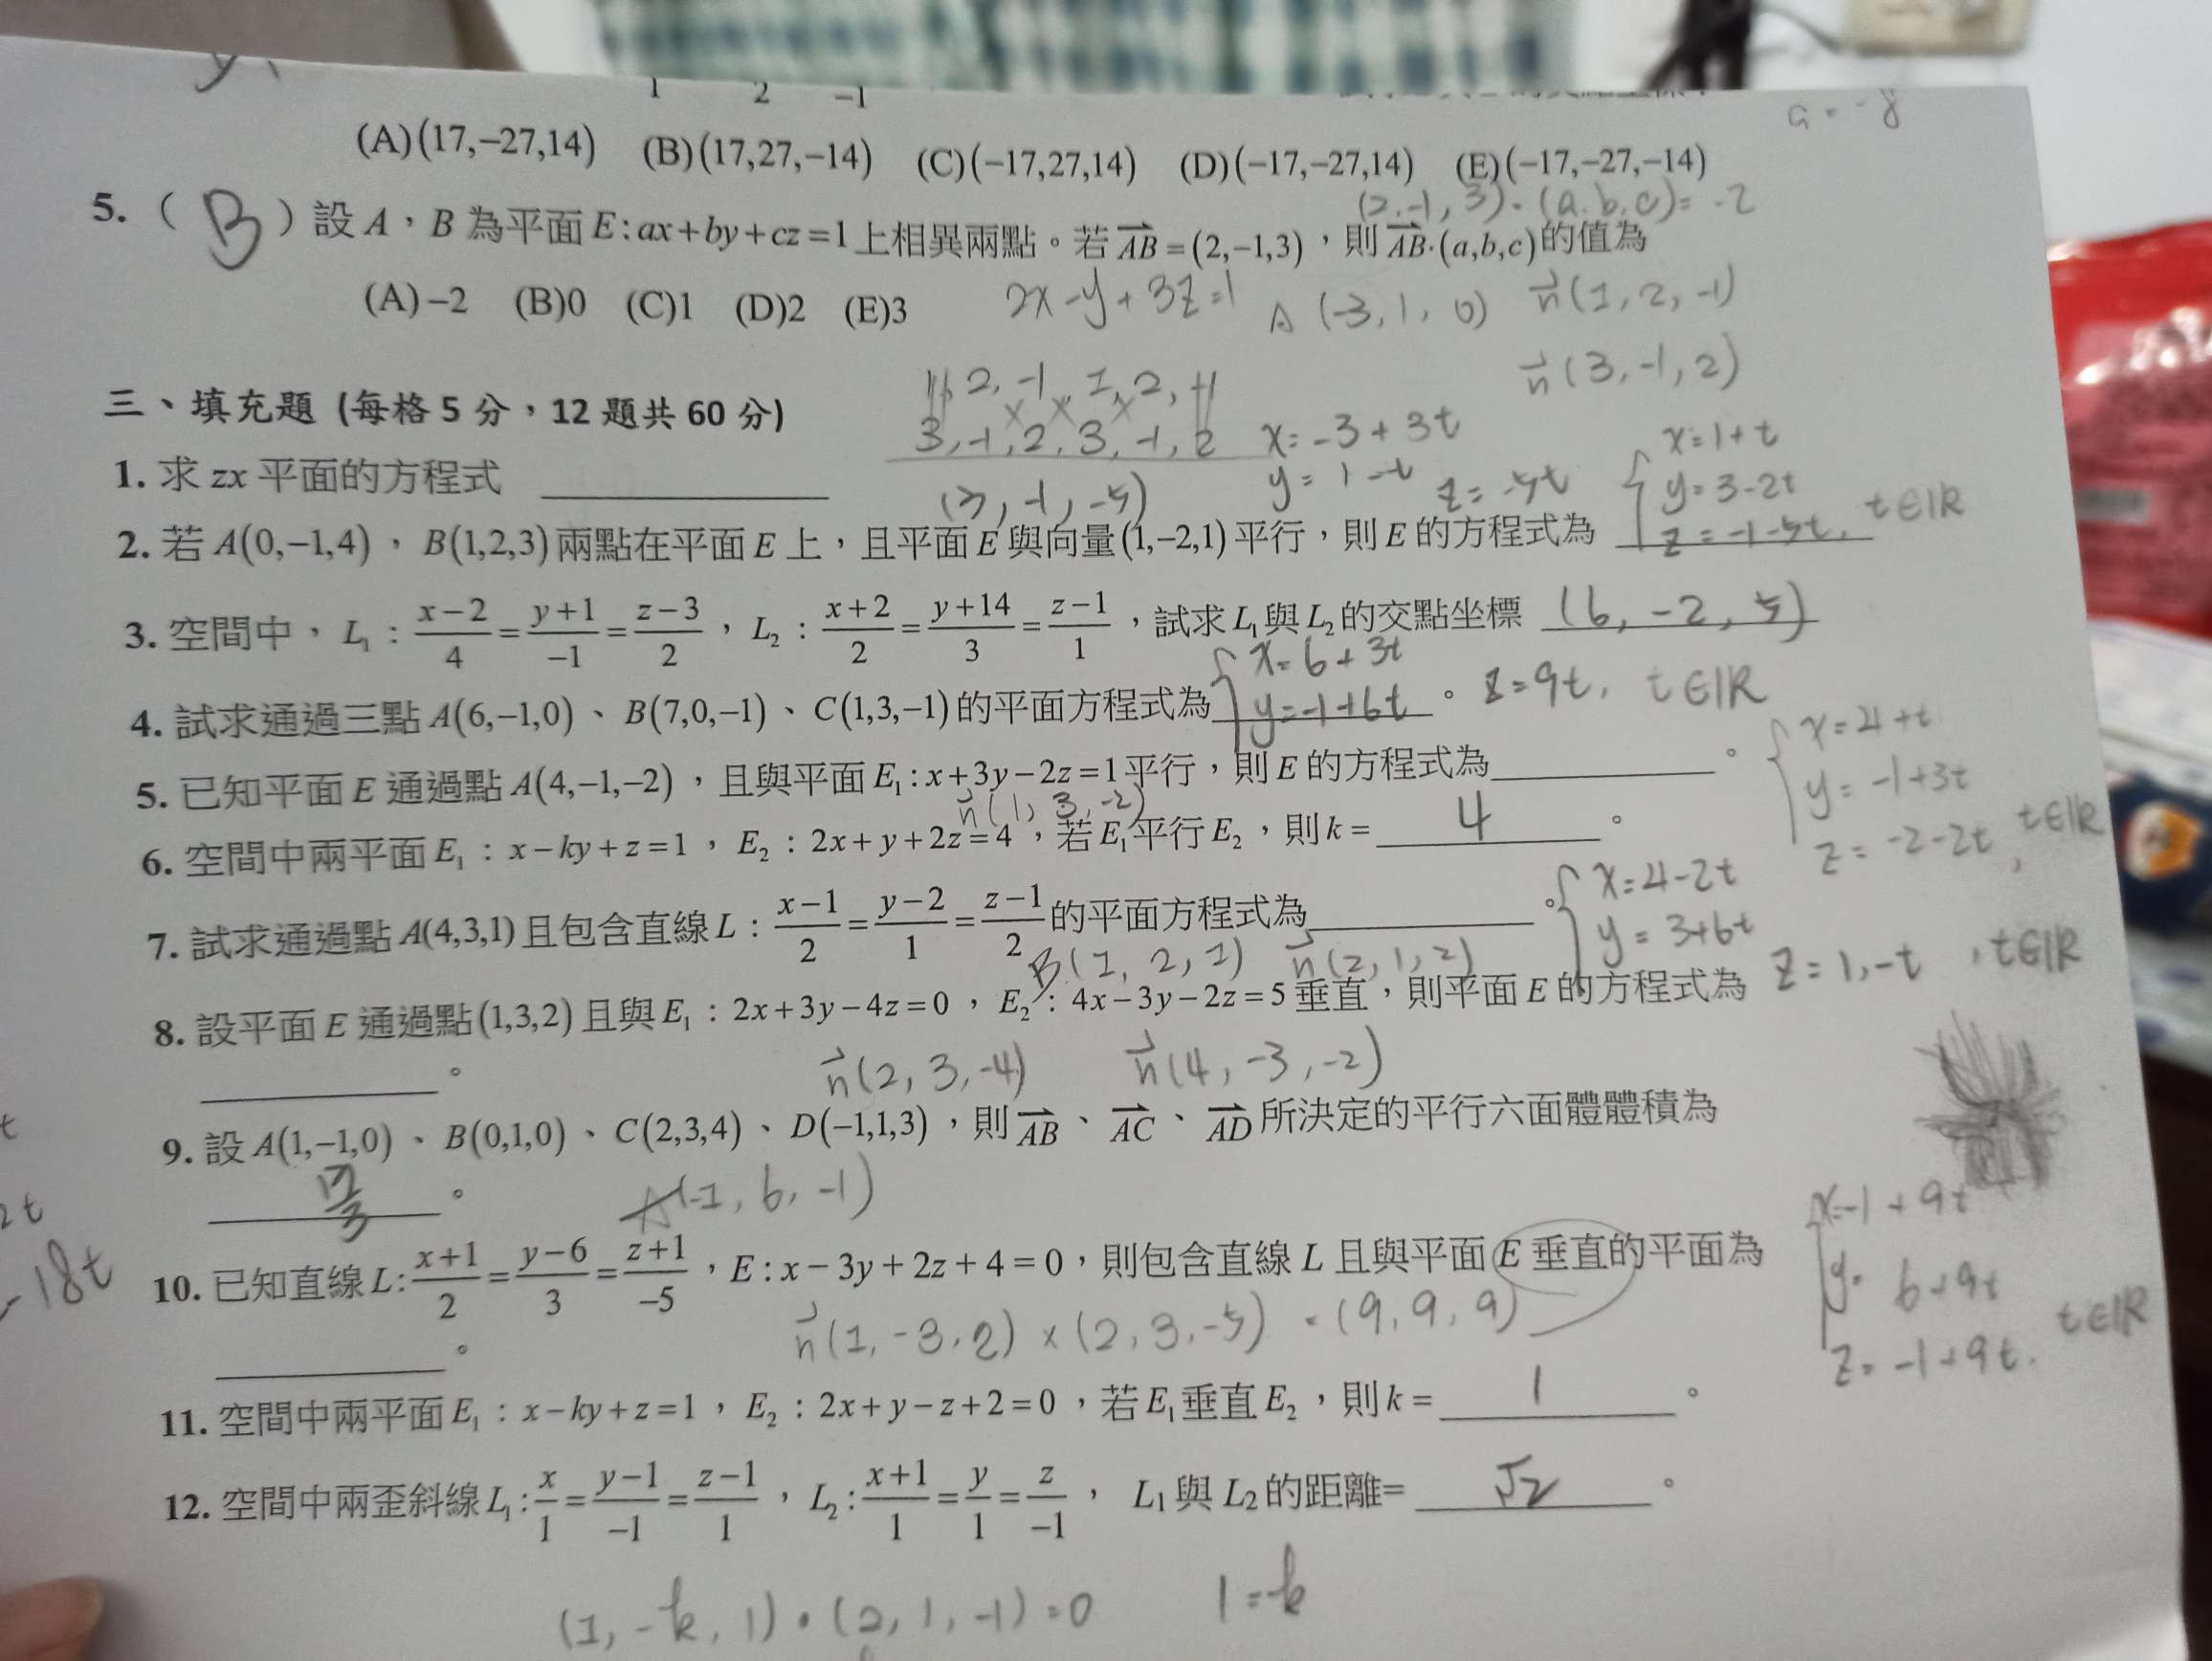 1 2 −1
a = -8
(A)(17,−27,14) (B)(17,27,−14) (C)(−17,27,14) (D)(−17,−27,14) (E)(−17,−27,−14)
(2,-1,3)·(a.b.c)= -2
5. ( B ) 設 A，B 為平面 E:ax+by+cz=1 上相異兩點。若 AB=(2,−1,3)，則 AB·(a,b,c) 的值為
(A)−2 (B)0 (C)1 (D)2 (E)3
2x-y+3z=1 A(-3,1,0) n(1,2,-1)
n(3,-1,2)
三、填充題 (每格 5 分，12 題共 60 分)
3,-1,2,3,-1,2
x=-3+3t
y=1-t z=-5t
(3,-1,-5)
x=1+t
y=3-2t
z=-1-5t, t∈R
1. 求 zx 平面的方程式
2. 若 A(0,−1,4)，B(1,2,3) 兩點在平面 E 上，且平面 E 與向量 (1,−2,1) 平行，則 E 的方程式為
3. 空間中，L₁：(x−2)/4=(y+1)/−1=(z−3)/2，L₂：(x+2)/2=(y+14)/3=(z−1)/1，試求 L₁ 與 L₂ 的交點坐標 (6,-2,5)
4. 試求通過三點 A(6,−1,0)、B(7,0,−1)、C(1,3,−1) 的平面方程式為 。
x=6+3t
y=-1+6t
z=9t, t∈R
5. 已知平面 E 通過點 A(4,−1,−2)，且與平面 E₁:x+3y−2z=1 平行，則 E 的方程式為 。
n(1,3,-2)
x=4+t
y=-1+3t
z=-2-2t, t∈R
6. 空間中兩平面 E₁：x−ky+z=1，E₂：2x+y+2z=4，若 E₁ 平行 E₂，則 k= 4 。
7. 試求通過點 A(4,3,1) 且包含直線 L：(x−1)/2=(y−2)/1=(z−1)/2 的平面方程式為 。
x=4-2t
y=3+6t
z=1,-t ,t∈R
B(1,2,1) n(2,1,2)
8. 設平面 E 通過點 (1,3,2) 且與 E₁：2x+3y−4z=0，E₂：4x−3y−2z=5 垂直，則平面 E 的方程式為
。
n(2,3,-4) n(4,-3,-2)
9. 設 A(1,−1,0)、B(0,1,0)、C(2,3,4)、D(−1,1,3)，則 AB、AC、AD 所決定的平行六面體體積為
。
A(-1,6,-1)
10. 已知直線 L:(x+1)/2=(y−6)/3=(z+1)/−5，E:x−3y+2z+4=0，則包含直線 L 且與平面 E 垂直的平面為
。
n(1,-3,2)×(2,3,-5)=(9,9,9)
x=-1+9t
y=6+9t
z=-1+9t. t∈R
-18t
2t
t
11. 空間中兩平面 E₁：x−ky+z=1，E₂：2x+y−z+2=0，若 E₁ 垂直 E₂，則 k= 1 。
12. 空間中兩歪斜線 L₁:x/1=(y−1)/−1=(z−1)/1，L₂:(x+1)/1=y/1=z/−1，L₁ 與 L₂ 的距離= √2 。
(1,-k,1)·(2,1,-1)=0 1=k